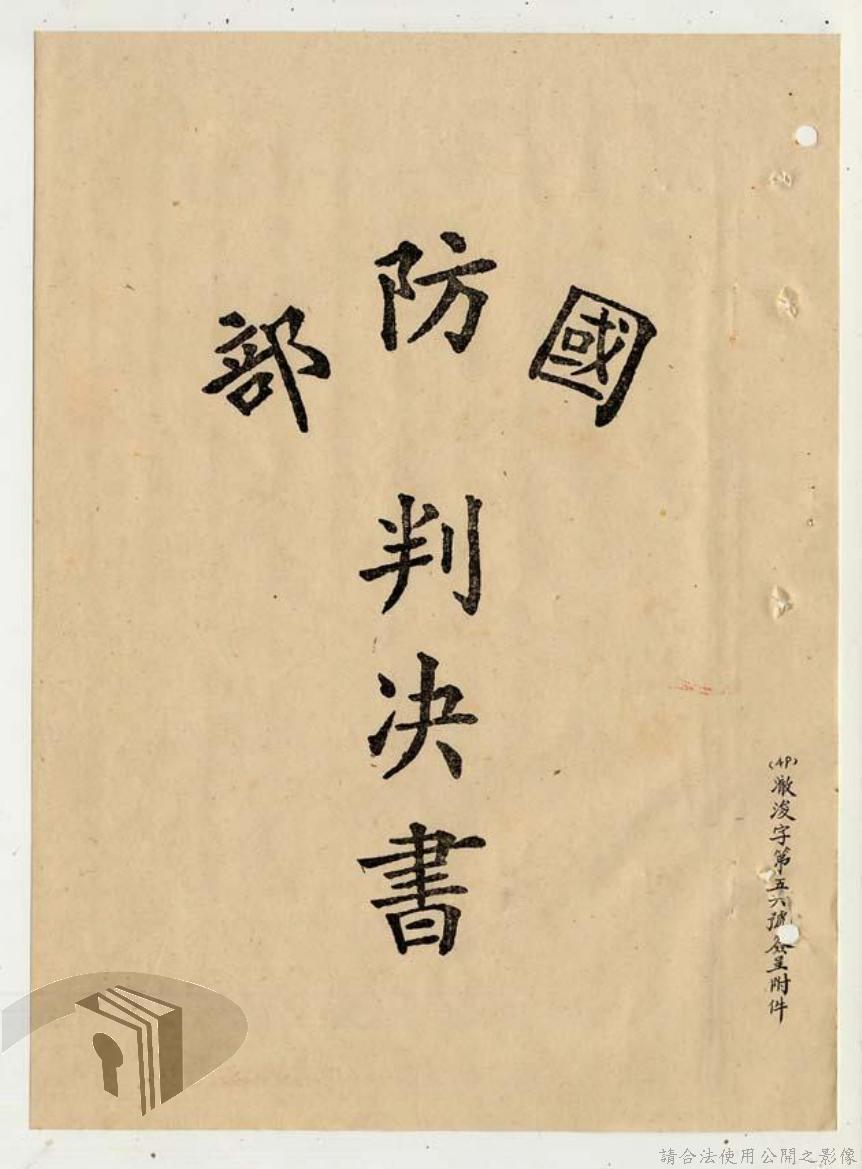 國防部
判決書
(49)澈浚字第五六號簽呈附件
請合法使用公開之影像